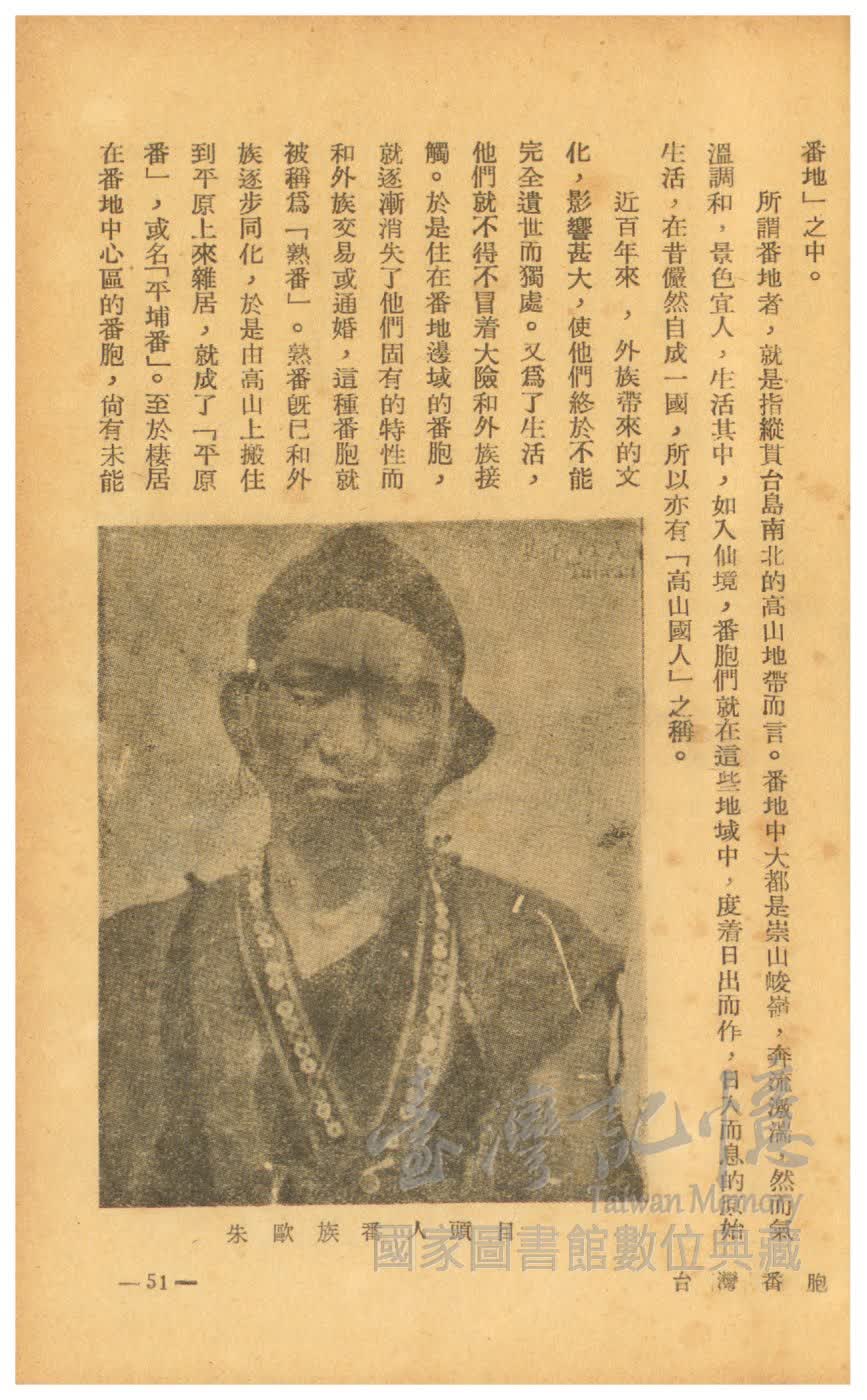 番地」之中。
所謂番地者，就是指縱貫台島南北的高山地帶而言。番地中大都是崇山峻嶺，奔流激湍，然而氣
溫調和，景色宜人，生活其中，如入仙境，番胞們就在這些地域中，度着日出而作，日入而息的原始
生活，在昔儼然自成一國，所以亦有「高山國人」之稱。
近百年來，外族帶來的文
化，影響甚大，使他們終於不能
完全遺世而獨處。又爲了生活，
他們就不得不冒着大險和外族接
觸。於是住在番地邊域的番胞，
就逐漸消失了他們固有的特性而
和外族交易或通婚，這種番胞就
被稱爲「熟番」。熟番旣已和外
族逐步同化，於是由高山上搬住
到平原上來雜居，就成了「平原
番」，或名「平埔番」。至於棲居
在番地中心區的番胞，尙有未能
朱歐族番人頭目
台灣番胞
—51—
臺灣記憶
Taiwan Memory
國家圖書館數位典藏